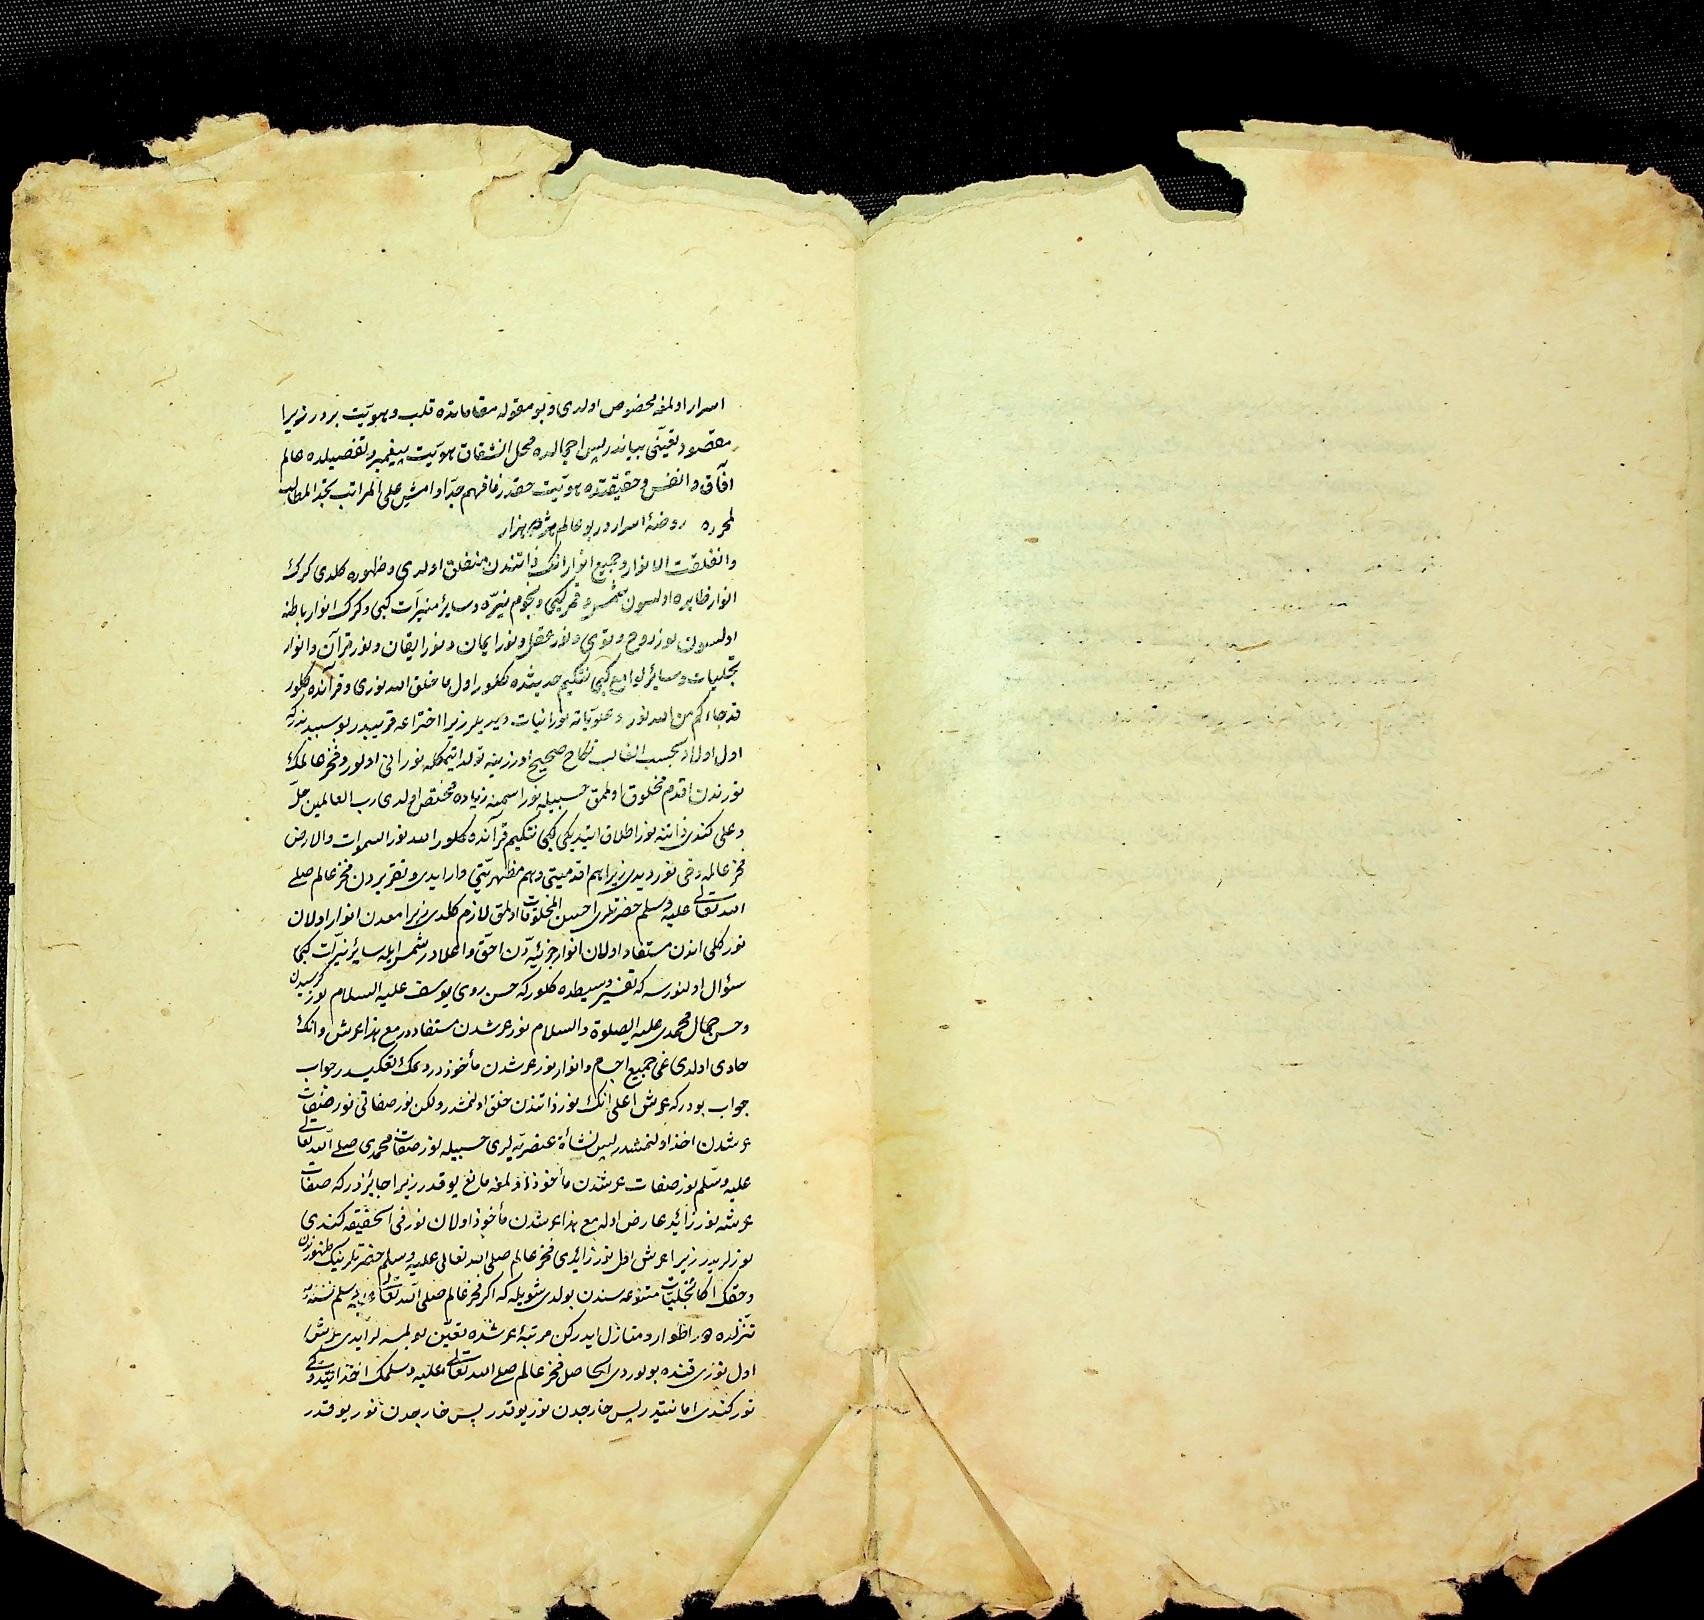 اسرار اولمغه مخصوص اولدی و بو مقوله مقاماتده قلب و هویت بردر زیرا
مقصود تعینی بیاندر پس اجمالده محل انشقاق هویت پیغمبر و تفصیلده عالم
آفاق و انفس و حقیقتده هویت حقدر فافهم جدا وامش علی المراتب تجد المطالب
لمحرره روضهٔ اسرار در بو عالم هزار
وانفلقت الانوار و جمیع انوار انک ذاتندن منفلق اولدی و ظهوره کلدی کرک
انوار ظاهره اولسون شمس و قمر کبی و نجوم نیره و سایر منیرات کبی و کرک انوار باطنه
اولسون نور روح و قوی و نور عقل و نور ایمان و نور ایقان و نور قرآن و انوار
تجلیات و سایر لوامع کبی نتکیم حدیثده کلور اول ما خلق الله نوری و قرآنده کلور
قد جاءکم من الله نور و عنویاته نورانیات دیدیلر زیرا اختراعه قریبدر بو سببدندرکه
اول اولاد بحسب الغالب نکاح صحیح اوزرینه تولد ایتمکله نورانی اولور و فخر عالمک
نورندن اقدم مخلوق اولمق حسبیله نور اسمنه زیاده مختص اولدی رب العالمین جل
وعلی کندی ذاتنه نور اطلاق ایتدیکی کبی نتکیم قرآنده کلور الله نور السموات والارض
فخر عالمه دخی نور دیدی زیرا هم اقدمیتی و هم مظهریتی وار ایدی و تقریردن فخر عالم صلی
الله تعالی علیه وسلم حضرتلری احسن المخلوقات اولمق لازم کلدی زیرا معدن انوار اولان
نور کلی اندن مستفاد اولان انوار جزئیه دن احق و اعلادر شمس ایله سایر نیرات کبی
سؤال اولنورسه که تفسیر وسیطده کلور که حسن روی یوسف علیه السلام نور کرسیدن
و حسن جمال محمدی علیه الصلوة والسلام نور عرشدن مستفاددر مع هذا عرش و انک
حاوی اولدیغی جمیع اجرام و انوار نور عرشدن مأخوذدر دیمک تعکیسدر جواب
جواب بودرکه عرش اعلی انک نور ذاتندن خلق اولنمشدر ولکن نور صفاتی نور صفات
عرشدن اخذ اولنمشدر پس نشأة عنصریه لری حسبیله نور صفات محمدی صلی الله تعالی
علیه وسلم نور صفات عرشدن مأخوذ اولمغه مانع یوقدر زیرا جایزدر که صفات
عرشه نور زاید عارض اوله مع هذا عرشدن مأخوذ اولان نور فی الحقیقه کندی
نورلریدر زیرا عرش اول نور زایدی فخر عالم صلی الله تعالی علیه وسلم حضرتلرینک ظهورندن
و حقک اکا تجلیات متنوعه سندن بولدی شویله که اکر فخر عالم صلی الله تعالی علیه وسلم
تنزلده اطوار و منازل ایدرکن مرتبهٔ عرشده تعین بولمسه لر ایدی عرش
اول نوری قنده بولوردی الحاصل فخر عالم صلی الله تعالی علیه وسلمک اخذ ایتدوکی
نور کندی امانتیدر پس خارجدن نور یوقدر پس خارجدن نور یوقدر